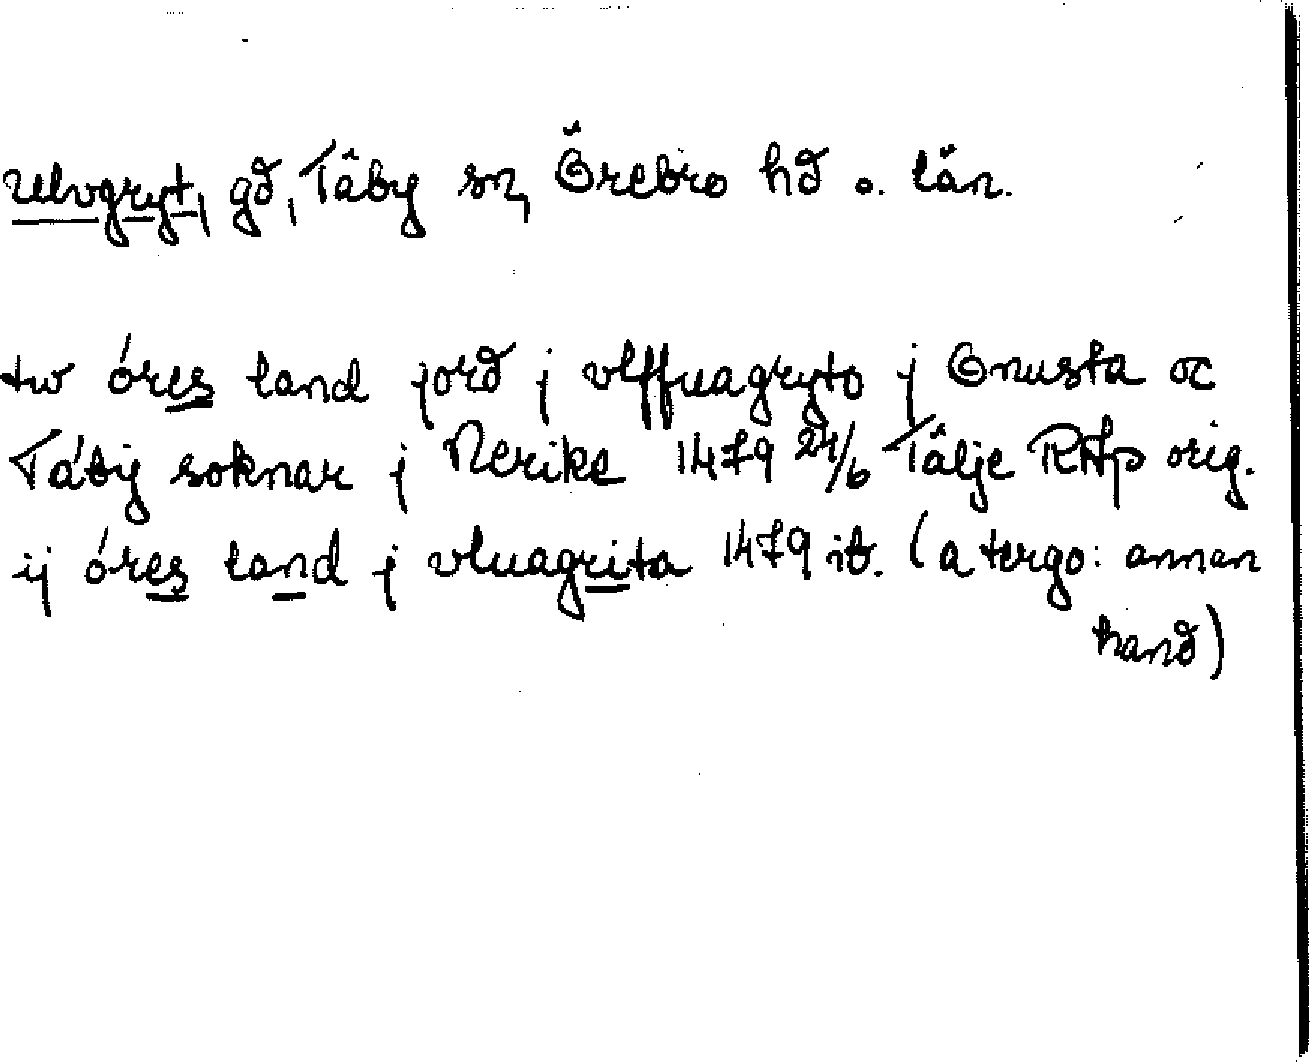 Ulvgryt, gd, Täby sn, Örebro hd o. län.
tw óres land jord j vlffuagryto j Gnusta oc
Táby soknar j Nerike 1479 24/6 Tälje RAp orig.
ij óres land j vluagrita 1479 ib. (a tergo: annan
hand)